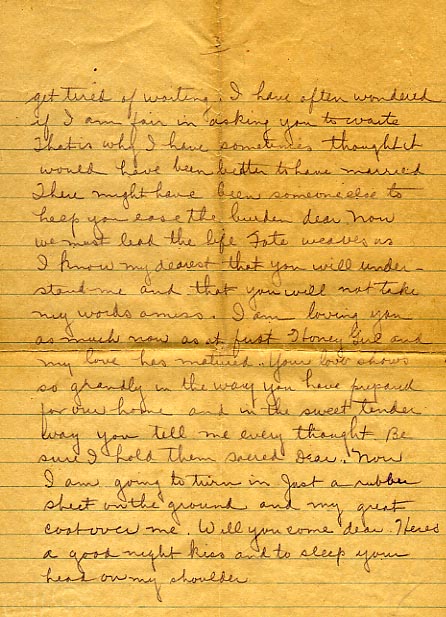 3
get tired of waiting. I have often wondered
if I am fair in asking you to waite
That is why I have sometimes thought it
would have been better to have married
There might have been someone else to
help you ease the burden dear. Now
we must lead the life Fate weaves as
I know my dearest that you will under-
stand me and that you will not take
my words amiss. I am loving you
as much now as at first Honey Girl and
my love has matured. Your love shows
so grandly in the way you have prepared
for our home and in the sweet tender
way you tell me every thought Be
sure I hold them sacred Dear. Now
I am going to turn in Just a rubber
sheet on the ground and my great
coat over me. Will you come dear. Heres
a good night kiss and to sleep your
head on my shoulder